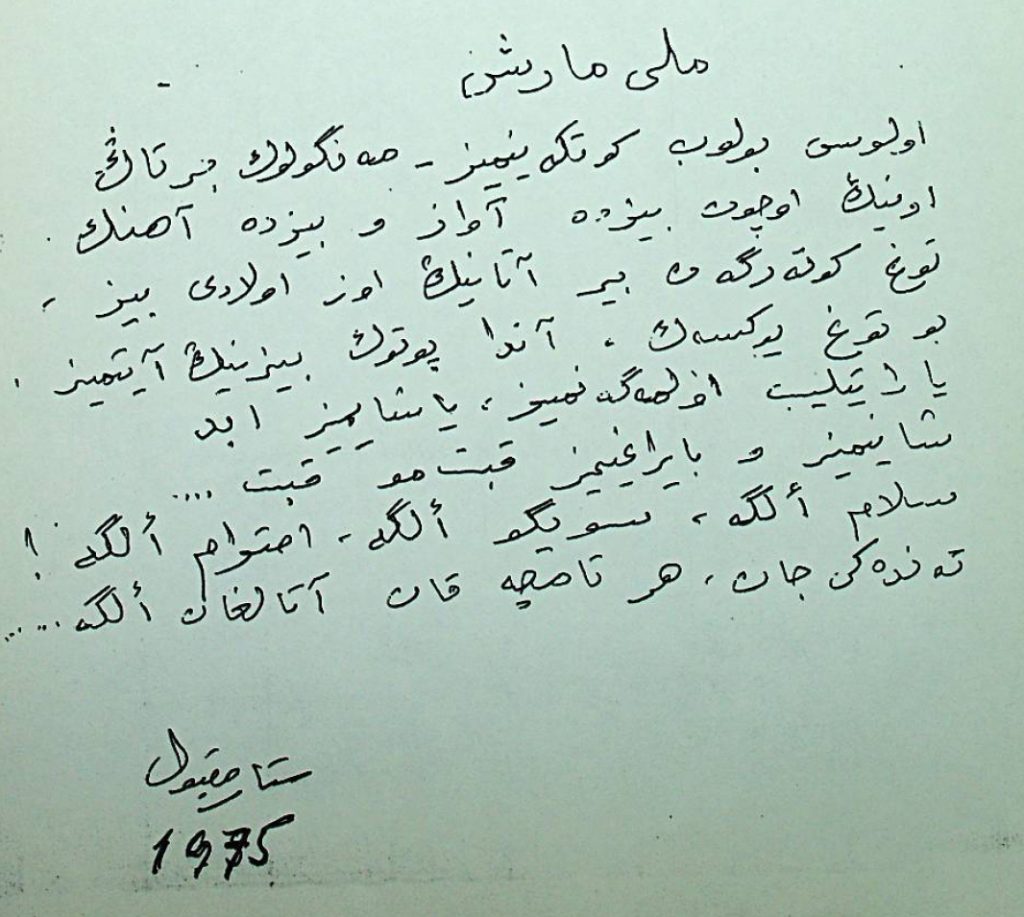 ملی مارشن
اولوس بولوب کوتکه نیمیز - مه نگولوك بیر تاڭ
اونینڭ اوچون بیزده آواز و بیزده آهنك .
توغ کوته رگه ن بیر آتانینڭ اوز اولادی بیز ،
بو توغ یوکسه ك ، آندا پوتوك بیزنینڭ آیتمیز .
یاراتیلیب اولمه گه نمیز ، یاشایمیز ابد
شانیمیز و بایراغیمیز قبت مو قبت ....
سلام ألگه ، سویگو ألگه ، احترام ألگه !
ته نده کی جان ، هر تامچه قان آتالغان ألگه .....
ستار مقبول
1975